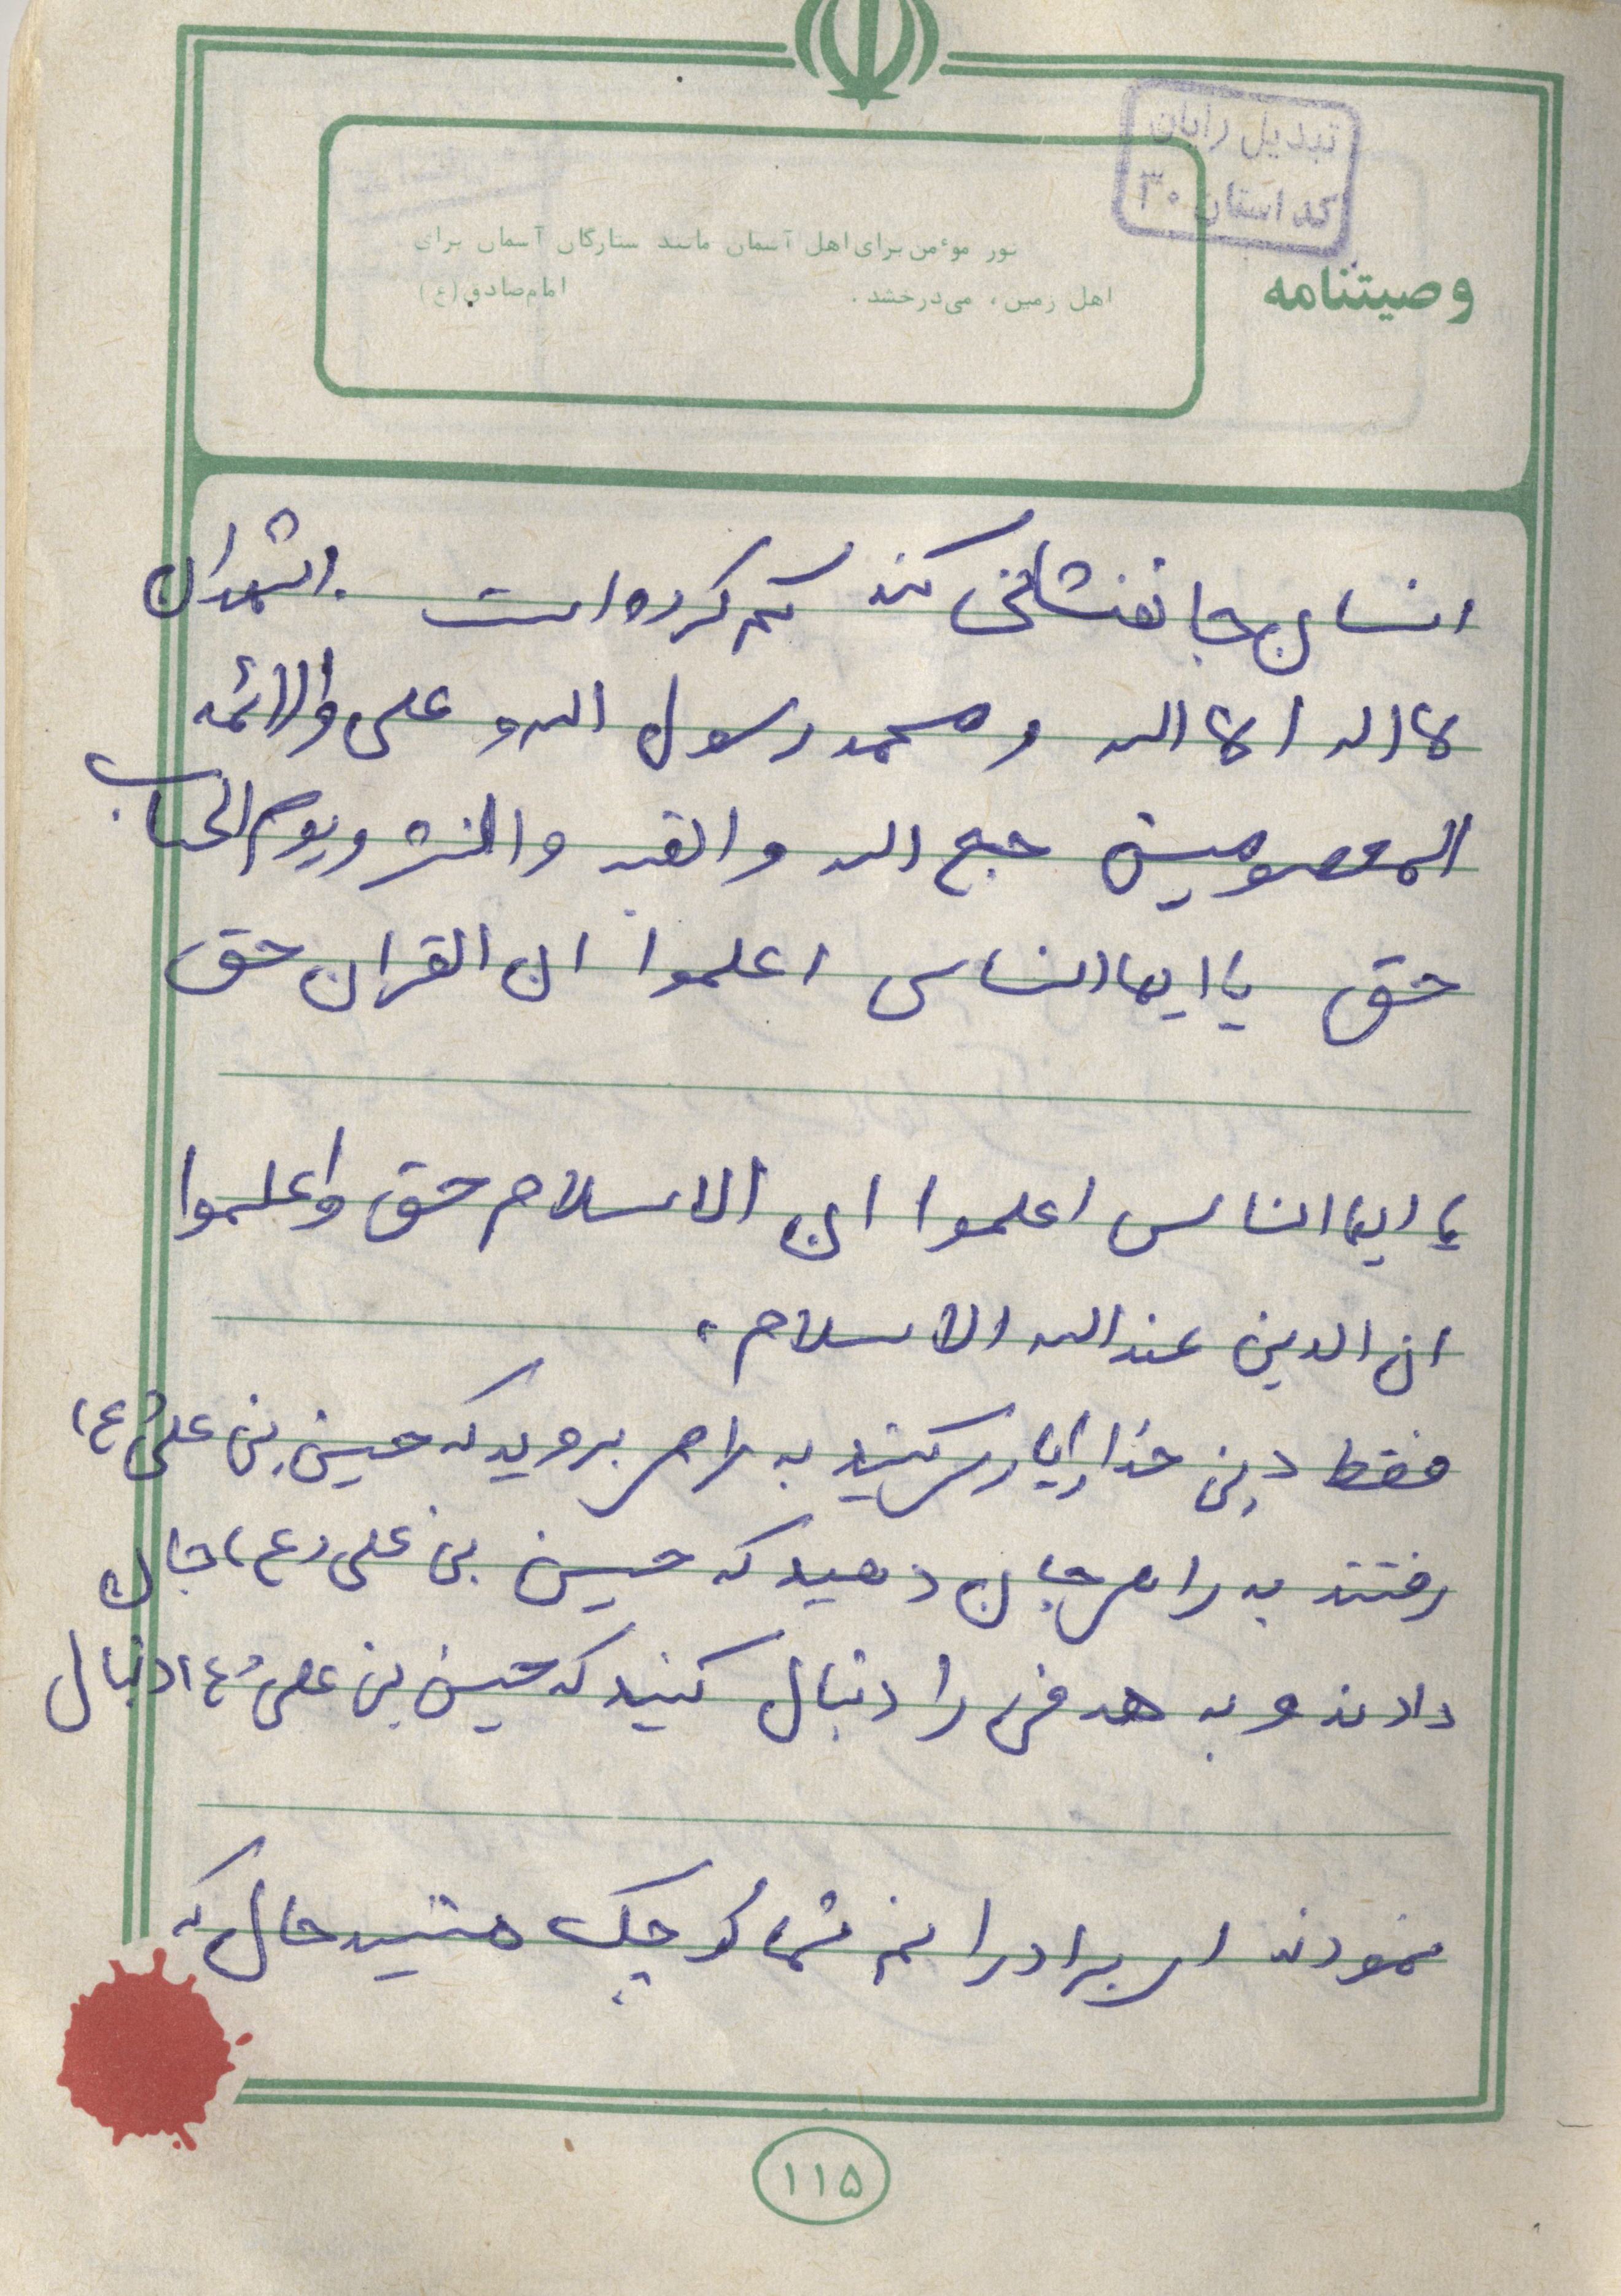 تبدیل رایان
کد استان ۳۰
وصیتنامه
نور موٴمن برای اهل آسمان مانند ستارگان آسمان برای
اهل زمین، می‌درخشد. امام صادق (ع)
انسان جانفشانی کند کم کرده است. اشهد ان
لا اله الا الله و محمد رسول الله و علی والائمه
المعصومین حجج الله والقبر والنشر و یوم الحساب
حق یا ایها الناس اعلموا ان القران حق
یا ایها الناس اعلموا ان الاسلام حق واعلموا
ان الدین عندالله الاسلام.
فقط دین خدا را یاری کنید به راهی بروید که حسین بن علی (ع)
رفتند به راهی جان دهید که حسین بن علی (ع) جان
دادند و به هدفی را دنبال کنید که حسین بن علی (ع) دنبال
نمودند ای برادرانم شما کوچک هستید حال که
۱۱۵